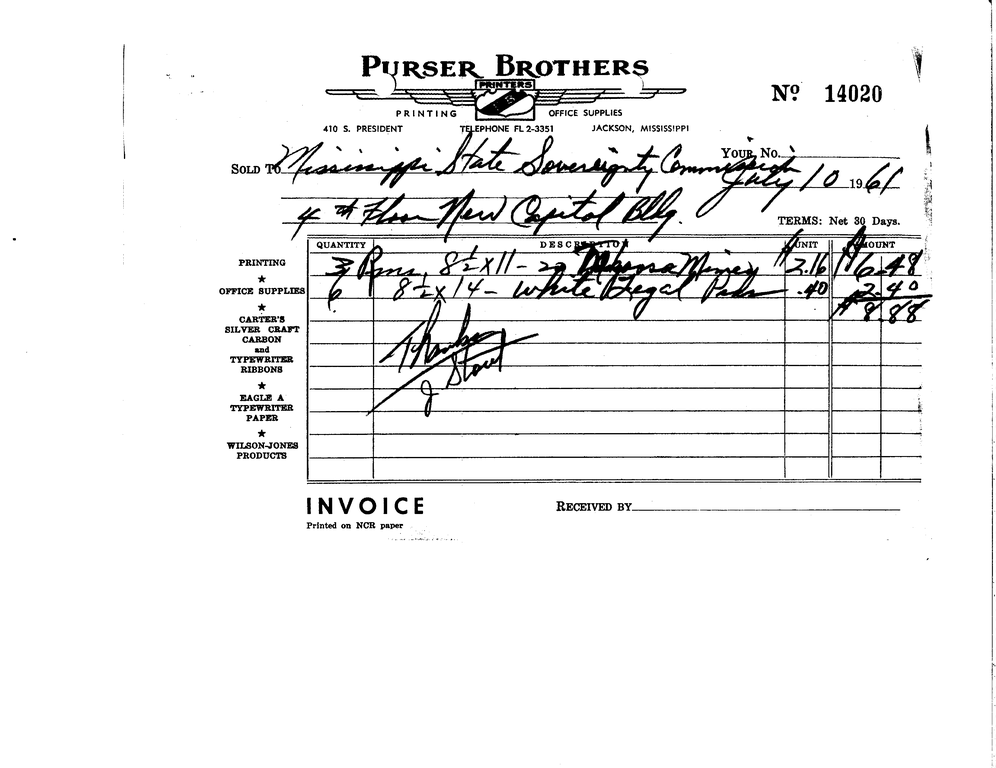 PURSER BROTHERS
PRINTERS
Nº 14020
PRINTING OFFICE SUPPLIES
410 S. PRESIDENT TELEPHONE FL 2-3351 JACKSON, MISSISSIPPI
YOUR NO.
SOLD TO Mississippi State Sovereignty Commission July 10 1961
4th Floor New Capitol Bldg.
TERMS: Net 30 Days.
QUANTITY DESCRIPTION UNIT AMOUNT
PRINTING
3 Rms, 8½ x 11 - 20 Mimeo $2.16 $6.48
★
OFFICE SUPPLIES
6 8½ x 14 - White Legal Pads .40 2.40
$8.88
★
CARTER'S
SILVER CRAFT
CARBON
and
TYPEWRITER
RIBBONS
Thanks
J. Stout
★
EAGLE A
TYPEWRITER
PAPER
★
WILSON-JONES
PRODUCTS
INVOICE
RECEIVED BY
Printed on NCR paper